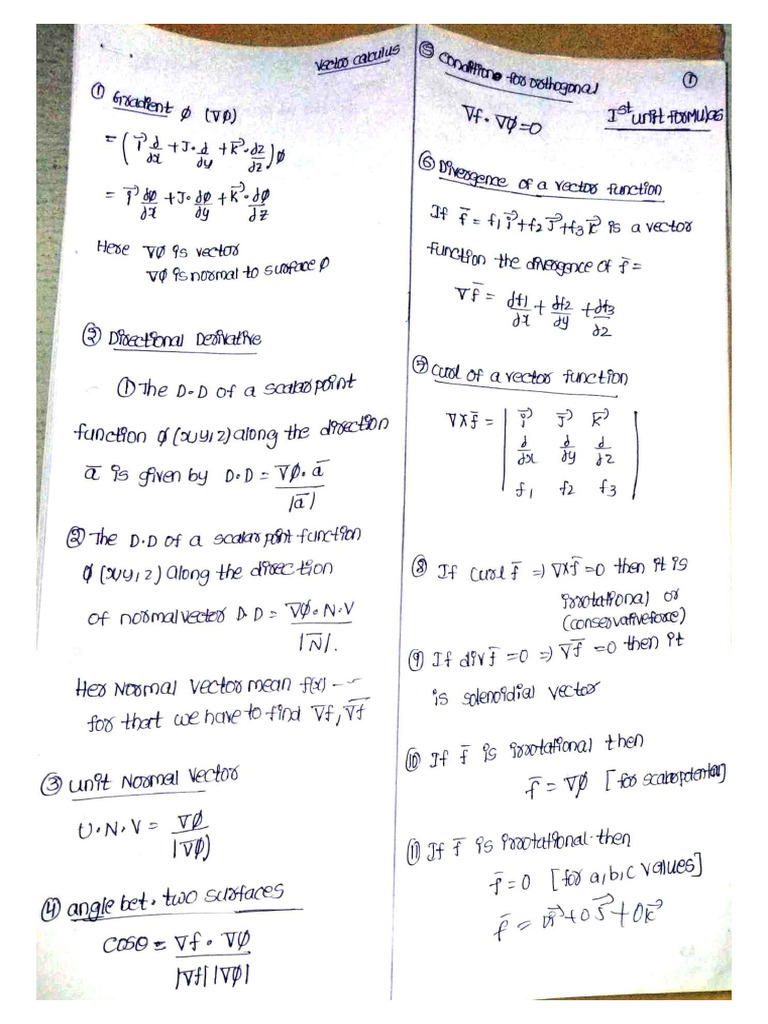 vector calculus
① Gradient ø (∇ø)
= (i⃗ d/dx + J. d/dy + K⃗. dz/dz) ø
= i⃗ dø/dx + J. dø/dy + K⃗. dø/dz
Here ∇ø is vector
∇ø is normal to surface ø
② Directional Derivative
① The D.D of a scalar point
function ø (x,y,z) along the direction
a̅ is given by D.D = ∇ø.a̅/|a̅|
② The D.D of a scalar point function
ø (x,y,z) along the direction
of normal vector D.D = ∇ø.N.V/|N̅|.
Her Normal vector mean f(x) --
for that we have to find ∇f, ∇f̅
③ unit Normal vector
U.N.V = ∇ø/|∇ø)
④ angle bet. two surfaces
COSθ = ∇f . ∇ø/|∇f| |∇ø|
⑤ conditions for orthogonal
①
∇f . ∇ø=0
Ist unit formulas
⑥ Divergence of a vector function
If f̅ = f1 i⃗ + f2 J⃗ + f3 K⃗ is a vector
function the divergence of f̅ =
∇f̅ = df1/dx + df2/dy + df3/dz
⑦ Curl of a vector function
∇xf̅ = | i⃗ J⃗ K⃗ |
d/dx d/dy d/dz
f1 f2 f3
⑧ If curl f̅ => ∇xf̅ =0 then it is
irrotational or
(conservative force)
⑨ If div f̅ =0 => ∇f̅ =0 then it
is solenoidial vector
⑩ If f̅ is irrotational then
f̅ = ∇ø [for scalar potential]
⑪ If f̅ is irrotational.then
f̅ =0 [for a,b,c values]
f̅ = 0i⃗+0J⃗+0K⃗